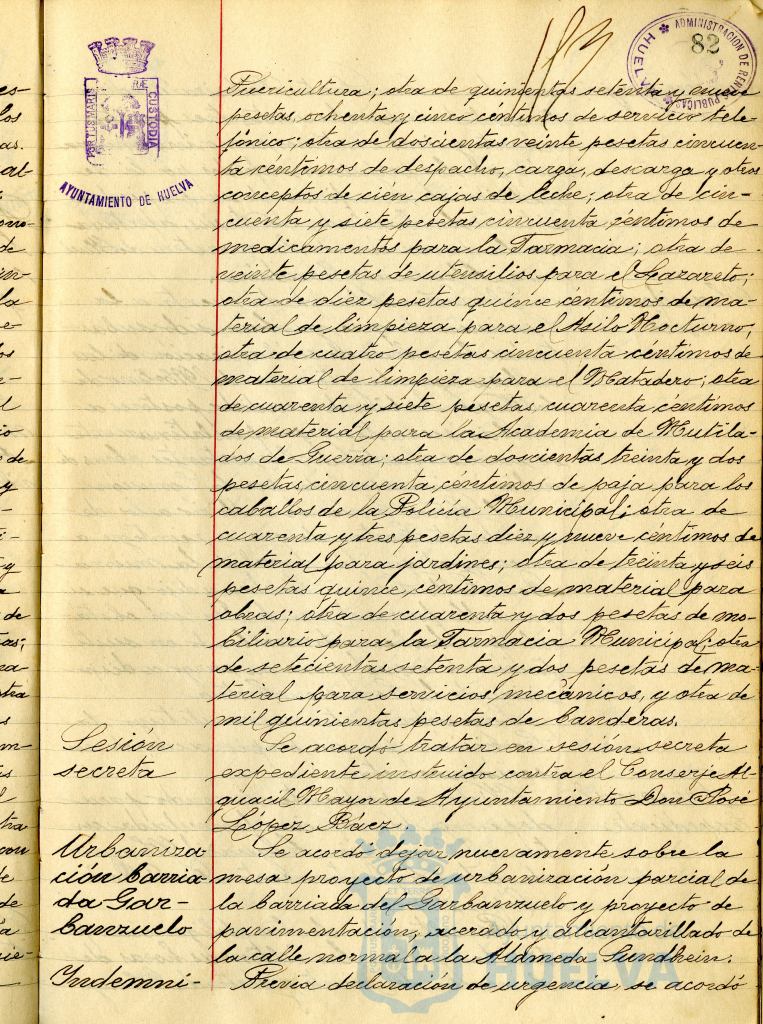 82
ADMINISTRACION DE RENTAS PUBLICAS
HUELVA
PORTUS MARIS
CUSTODIA
AYUNTAMIENTO DE HUELVA
Puericultura; otra de quinientas setenta y nueve
pesetas, ochenta y cinco céntimos de servicio tele-
fónico; otra de doscientas veinte pesetas cincuen-
ta céntimos de despacho, carga, descarga y otros
conceptos de cién cajas de leche; otra de cin-
cuenta y siete pesetas cincuenta céntimos de
medicamentos para la Farmacia; otra de
veinte pesetas de utensilios para el Lazareto;
otra de diez pesetas quince céntimos de ma-
terial de limpieza para el Asilo Nocturno,
otra de cuatro pesetas cincuenta céntimos de
material de limpieza para el Matadero; otra
de cuarenta y siete pesetas cuarenta céntimos
de material para la Academia de Mutila-
dos de Guerra; otra de doscientas treinta y dos
pesetas cincuenta céntimos de paja para los
caballos de la Policía Municipal; otra de
cuarenta y tres pesetas diez y nueve céntimos de
material para jardines; otra de treinta y seis
pesetas quince céntimos de material para
obras; otra de cuarenta y dos pesetas de mo-
biliario para la Farmacia Municipal; otra
de setecientas setenta y dos pesetas de ma-
terial para servicios mecánicos, y otra de
mil quinientas pesetas de banderas.
Sesión
secreta
Se acordó tratar en sesión secreta
expediente instruido contra el Conserje Al-
guacil Mayor de Ayuntamiento Don José
López Báez.
Urbaniza
ción barria-
da Gar-
banzuelo
Se acordó dejar nuevamente sobre la
mesa proyecto de urbanización parcial de
la barriada del Garbanzuelo y proyecto de
pavimentación, acerado y alcantarillado de
la calle normal a la Alameda Sundhein.
Indemni-
Previa declaración de urgencia se acordó
HUELVA